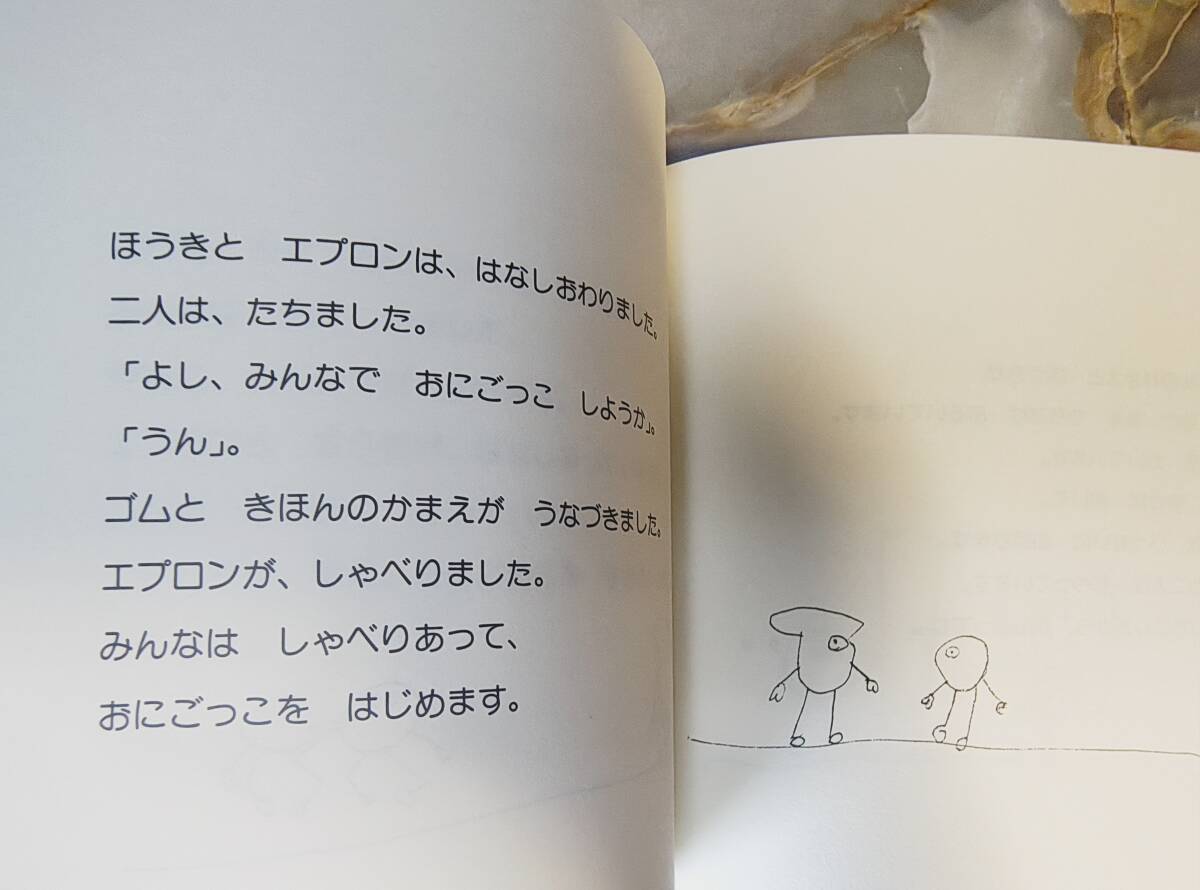 ほうきと　エプロンは、はなしおわりました。
二人は、たちました。
「よし、みんなで　おにごっこ　しようか」。
「うん」。
ゴムと　きほんのかまえが　うなづきました。
エプロンが、しゃべりました。
みんなは　しゃべりあって、
おにごっこを　はじめます。